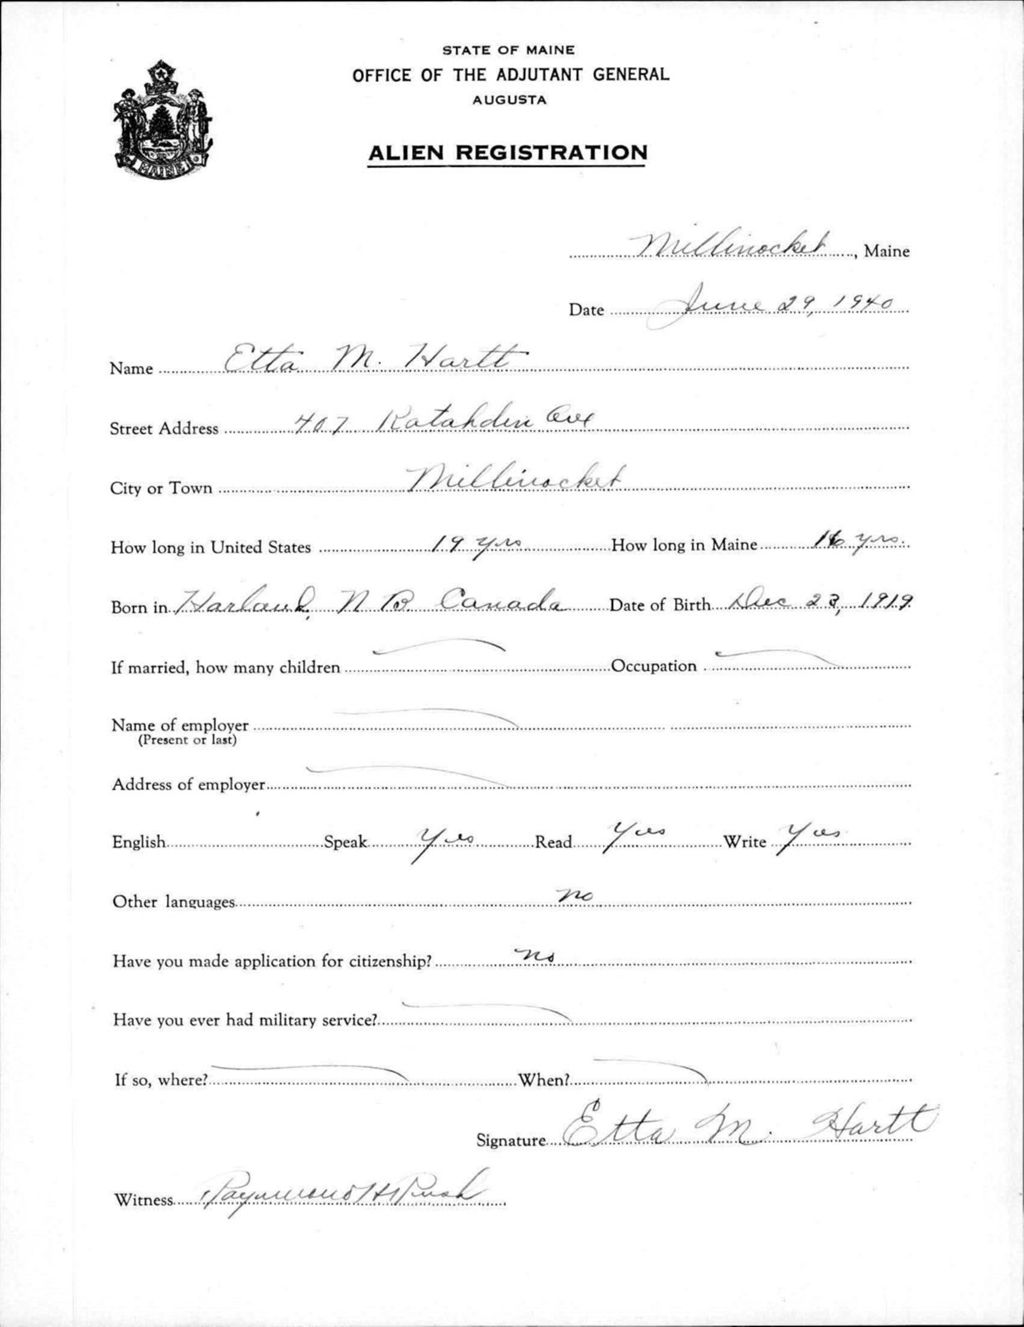 STATE OF MAINE
OFFICE OF THE ADJUTANT GENERAL
AUGUSTA
ALIEN REGISTRATION
MAINE
Millinocket, Maine
Date June 29, 1940
Name Etta M. Hartt
Street Address 407 Katahdin Ave
City or Town Millinocket
How long in United States 19 yrs How long in Maine 16 yrs.
Born in Harland, N B. Canada Date of Birth Dec 23, 1919
If married, how many children Occupation
Name of employer
(Present or last)
Address of employer
English Speak Yes Read Yes Write Yes
Other languages no
Have you made application for citizenship? no
Have you ever had military service?
If so, where? When?
Signature Etta M. Hartt
Witness Raymond H Rush